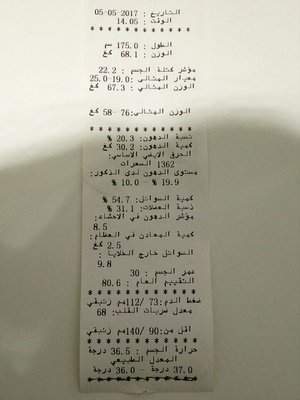 التاريخ : 2017-05-05
الوقت : 14.05
* * * * * * * * * * *
الطول : 175.0 سم
الوزن : 68.1 كغ
مؤشر كتلة الجسم : 22.2
معيار المثالي :19.0-25.0
الوزن المثالي : 67.3 كغ
الوزن المثالي:76 -58 كغ
* * * * * * * * * * *
نسبة الدهون: 20.3 %
كمية الدهون: 30.2 كغ
الحرق الايضي الاساسي:
1362 السعرات
مستوى الدهون لدى الذكور:
19.9 % - 10.0 %
كمية السوائل: 54.7 %
نسبة العضلات: 31.1 %
مؤشر الدهون في الاحشاء:
8.5
كمية المعادن في العظام:
2.5 كغ
السوائل خارج الخلايا :
9.8
عمر الجسم : 30
التقييم العام : 80.6
* * * * * * * * * * *
ضغط الدم: 73 /112مم زئبقي
معدل ضربات القلب: 68
اقل من: 90 /140مم زئبقي
* * * * * * * * * * *
حرارة الجسم : 36.5 درجة
المعدل الطبيعي
37.0 درجة - 36.0 درجة
* * * * * * * * * * *